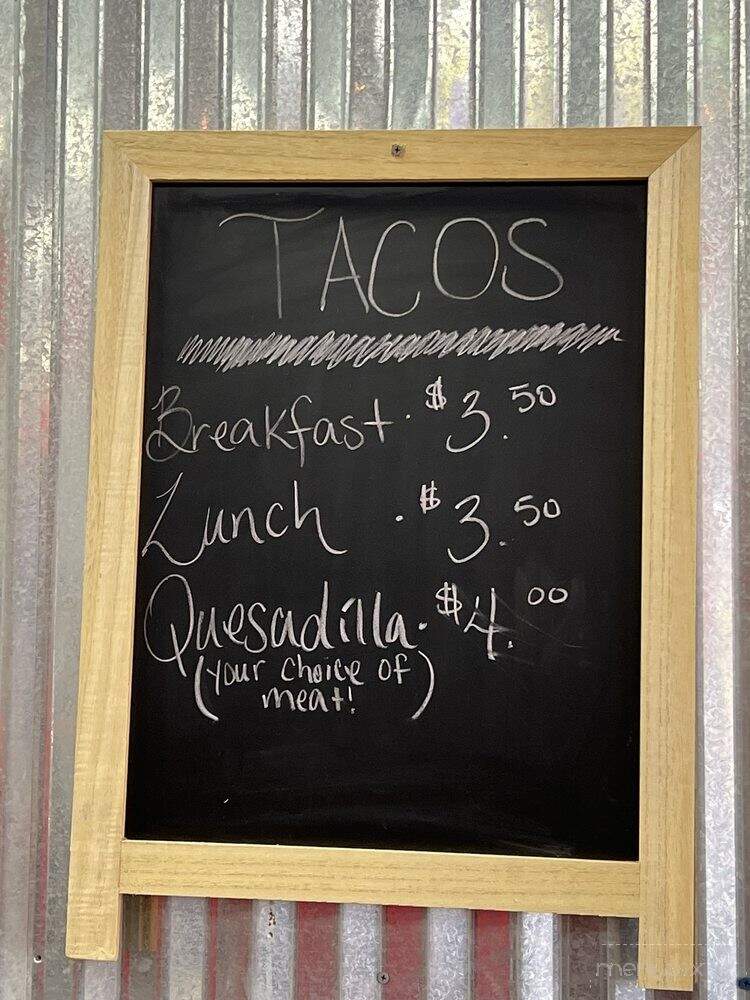 TACOS
Breakfast. $3.50
Lunch . $3.50
Quesadilla. $4.00
(your choice of
meat!)